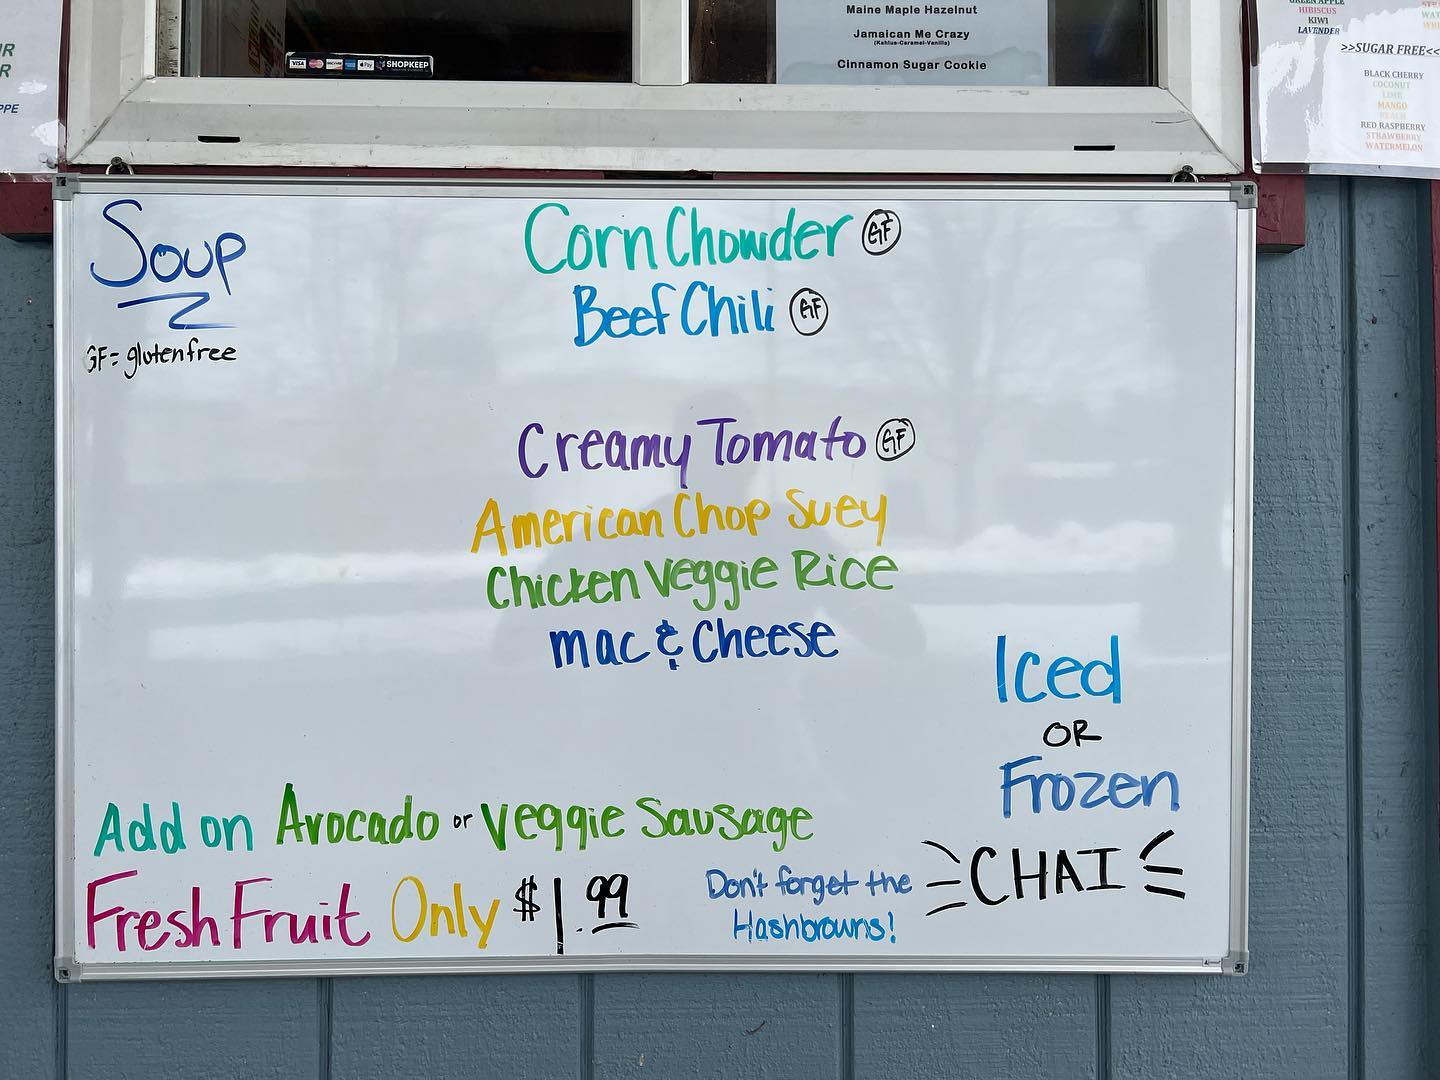 Maine Maple Hazelnut
Jamaican Me Crazy
(Kahlua-Caramel-Vanilla)
Cinnamon Sugar Cookie
VISA DISCOVER Pay SHOPKEEP
GREEN APPLE
HIBISCUS
KIWI
LAVENDER
>>SUGAR FREE<<
BLACK CHERRY
COCONUT
LIME
MANGO
PEACH
RED RASPBERRY
STRAWBERRY
WATERMELON
Soup
GF = gluten free
Corn Chowder GF
Beef Chili GF
Creamy Tomato GF
American Chop Suey
Chicken Veggie Rice
mac & Cheese
Iced
OR
Frozen
CHAI
Add on Avocado or Veggie Sausage
Fresh Fruit Only $1.99
Don't forget the
Hashbrowns!